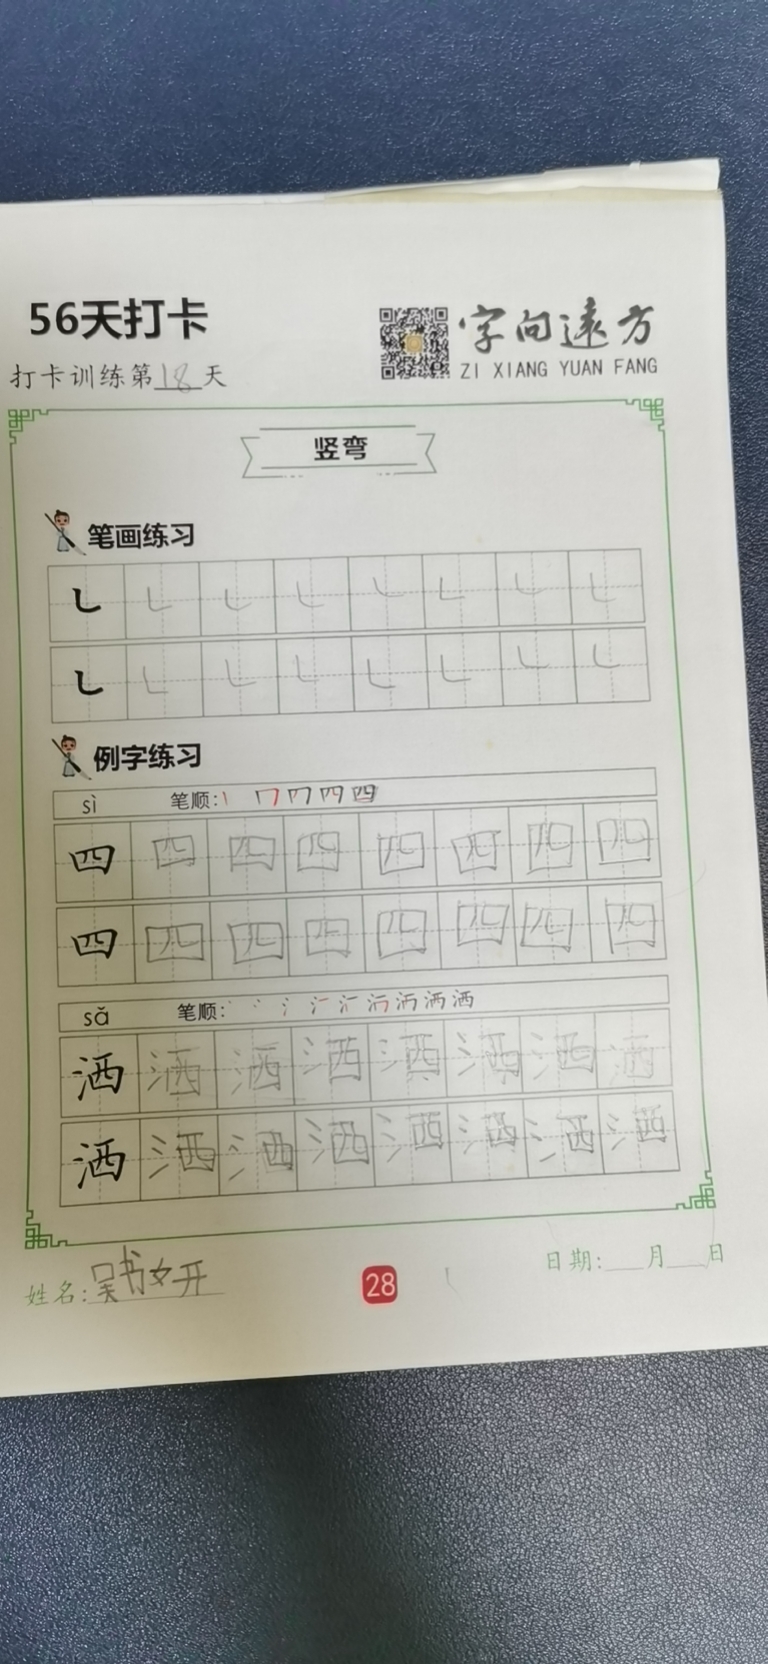 56天打卡
字向远方
ZI XIANG YUAN FANG
打卡训练第18天
竖弯
笔画练习
㇄ ㇄ ㇄ ㇄ ㇄ ㇄ ㇄ ㇄
㇄ ㇄ ㇄ ㇄ ㇄ ㇄ ㇄ ㇄
例字练习
sì 笔顺:
四 四 四 四 四 四 四 四
四 四 四 四 四 四 四 四
sǎ 笔顺:
洒 洒 洒 洒 洒 洒 洒 洒
洒 洒 洒 洒 洒 洒 洒 洒
姓名:吴书文开
28
日期:___月___日